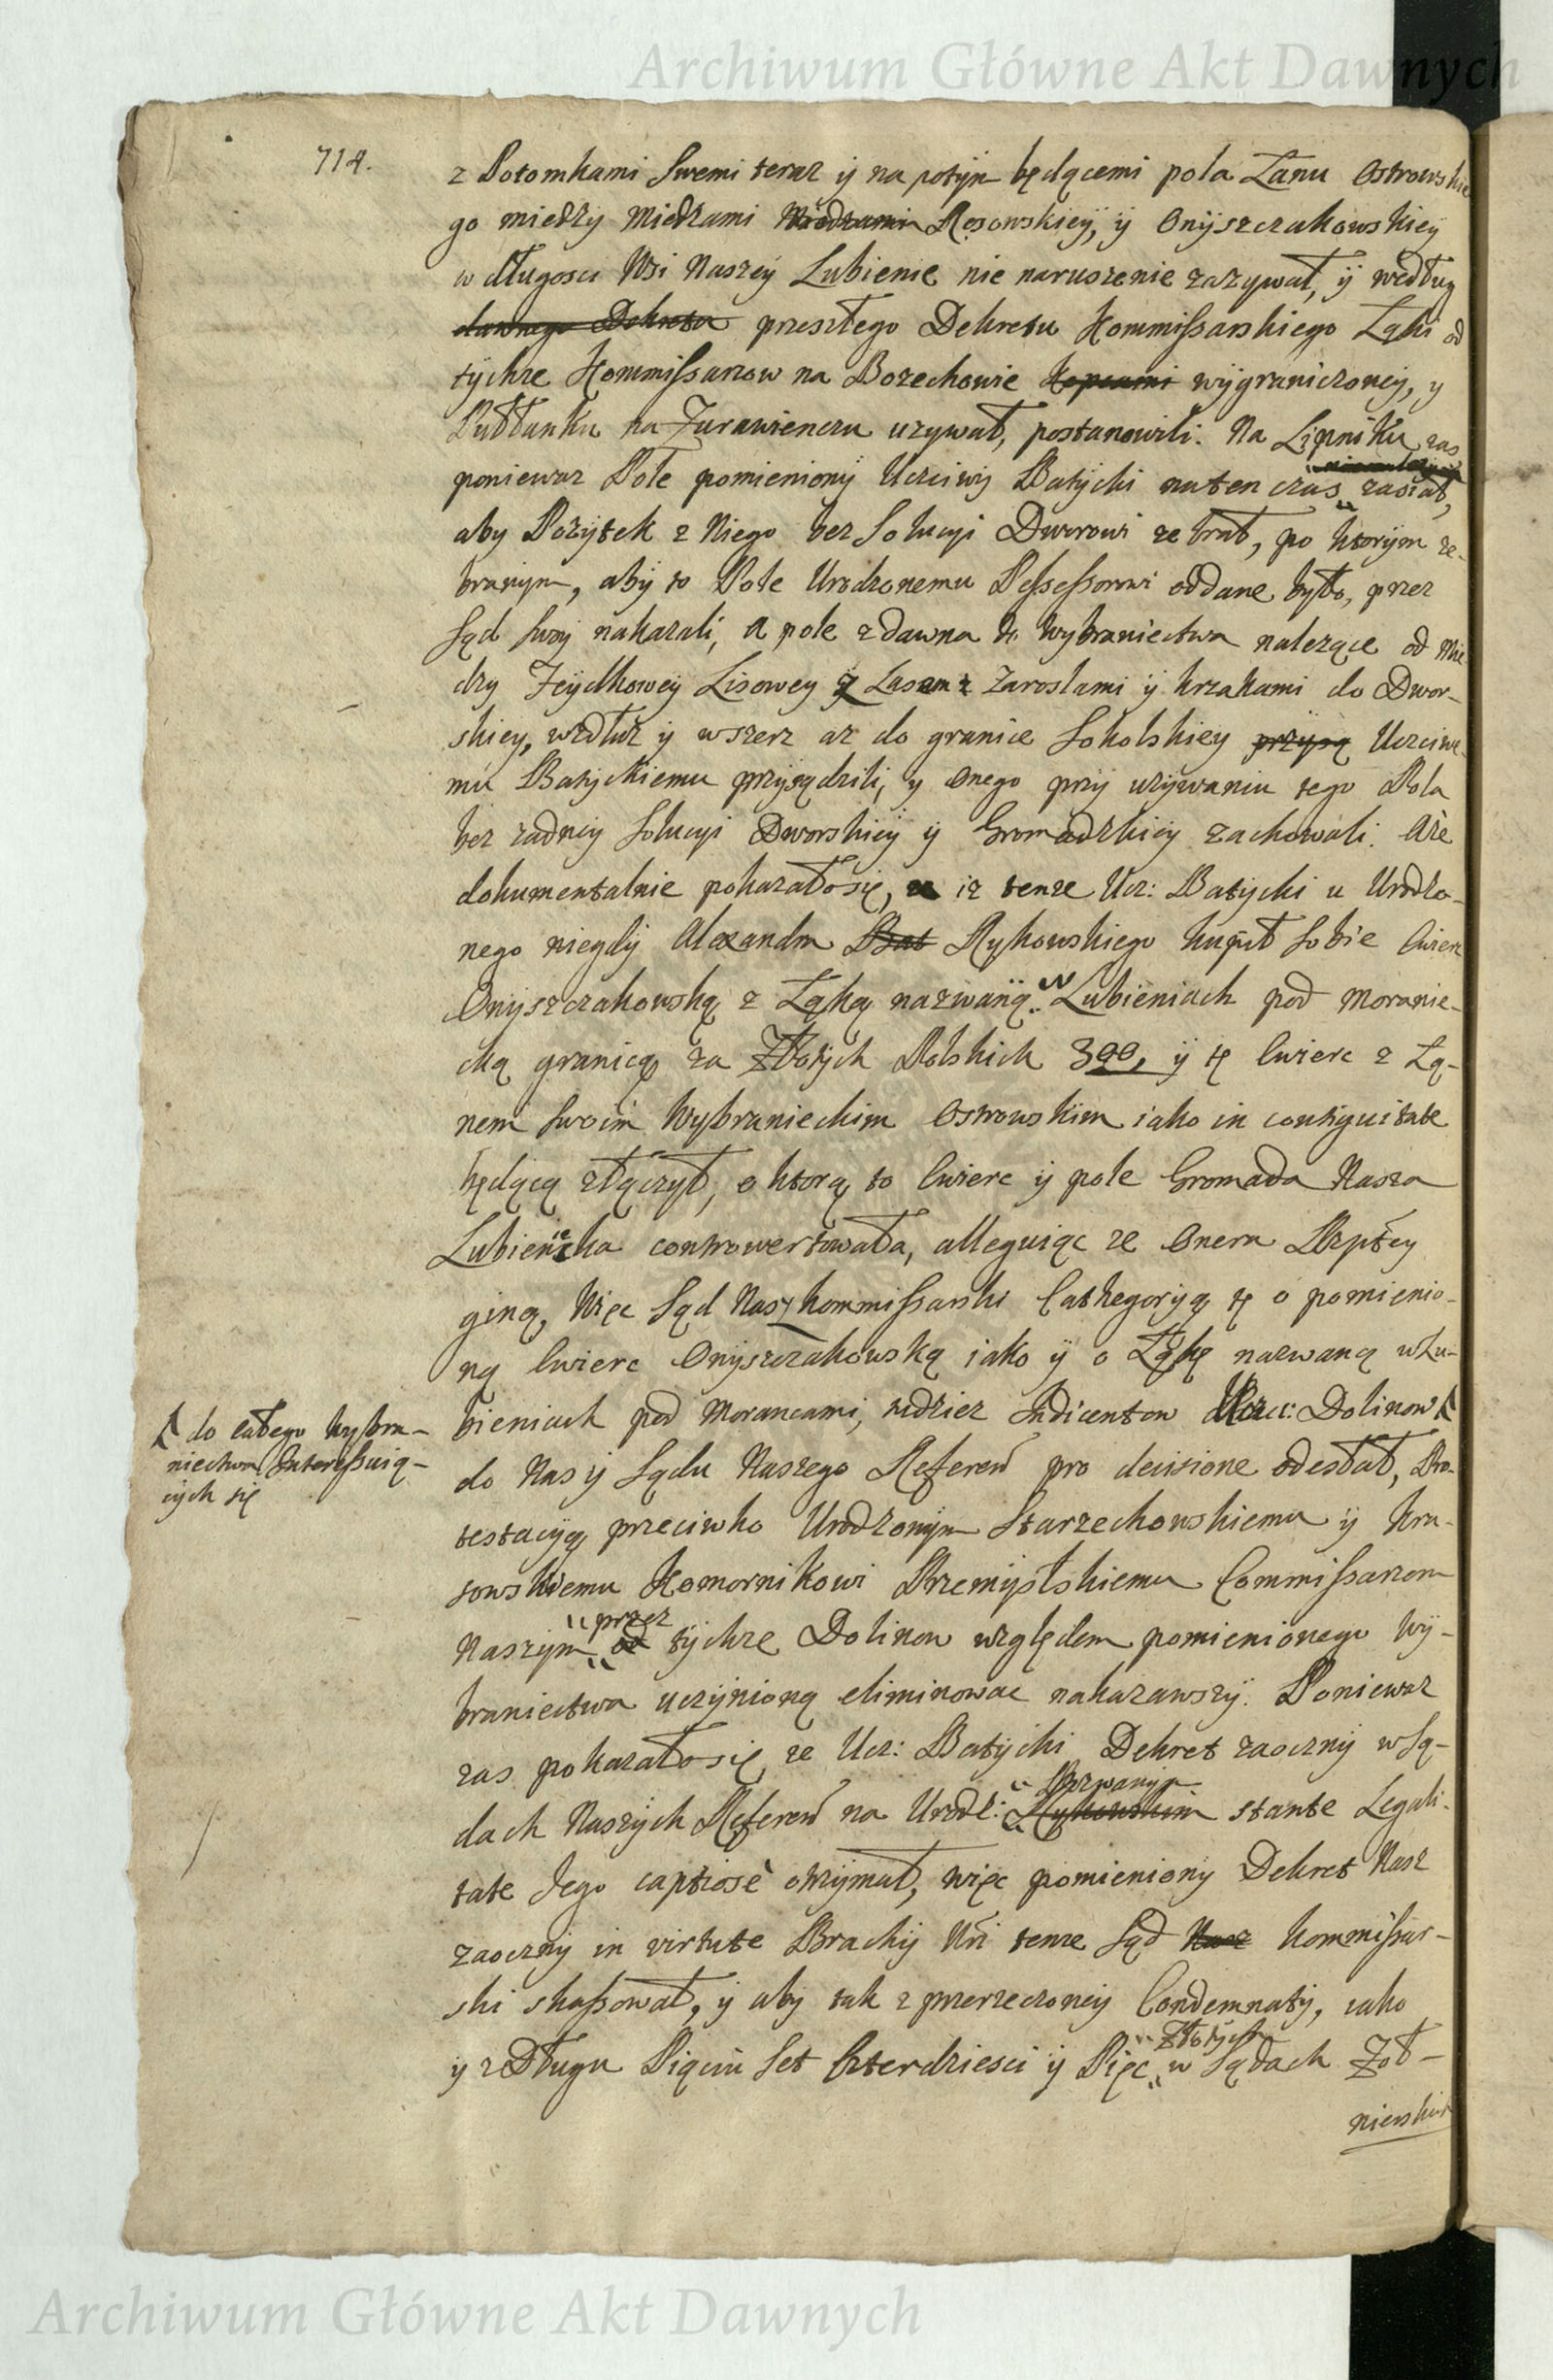 Archiwum Główne Akt Dawnych
714.
z Potomkami Swemi teraz ÿ na potÿm będącemi pola Łanu Ostrowskie
go między Miedzami Miedzami Rosowskieÿ, ÿ Onÿszczakowskiey
w długosci Wsi Naszeÿ Lubienie nie naruszenie zazywał, ÿ według
dawnego Dekretu przeszłego Dekretu Kommissarskiego Łąki od
tÿchze Kommissarzow na Bozechowie Kopcami wÿgraniczoneÿ, y
Pułłanku na Zurawienczu uzywał, postanowili. Na Lipniku zas
poniewaz Pole pomienionÿ Uczciwÿ Batÿcki natenczas zasiał,
aby Pozÿtek z Niego bez Solucÿi Dworowi zebrał, po ktorÿm ze-
branÿm, abÿ to Pole Urodzonemu Possessorowi oddane było, przez
Sąd Swoÿ nakazali, A pole zdawna do Wybraniectwa nalezące od Mie
dzy Feÿdkoweÿ Lisowey z Lasem z Zaroslami ÿ krzakami do Dwor-
skiey, wzdłuz ÿ wszerz az do granice Sokolskiey przysą Uczciwe
mu Batÿckiemu przÿsądzili, y Onego przÿ uzÿwaniu tego Pola
bez zadneÿ Solucÿi Dworskieÿ ÿ Gromadzkieÿ zachowali. Aże
dokumentalnie pokazałosię, iz tenze Ucz: Batÿcki u Urodzo-
nego niegdÿ Alexandra Bat Rykowskiego kupił Sobie Cwierc
Onÿszczakowską z Łąką nazwaną w Lubieniach pod Moranie-
cką granicą za Złotÿch Polskich 300, ÿ tę Cwierc z Łą-
nem Swoim Wybranieckim Ostrowskim iako in contiguitate
będącą złączył, o ktorą to Cwierc ÿ pole Gromada Nasza
Lubieniecka controwertowała, alleguiąc ze Onera Rzptey
giną, Więc Sąd Nasz Kommissarski Cathegorÿą tę o pomienio-
ną Cwierc Onÿszczakowską iako ÿ o Łąkę nazwaną w Lu-
bieniach pod Morancami, tudziez Indicentow Ucz: Dolinow
do całego Wybra-
niectwa Interessuią-
cÿch się
do Nas ÿ Sądu Naszego Referen pro decisione odesłał, Pro-
testacyą przeciwko Urodzonÿm Starzechowskiemu ÿ Kra-
sowskiemu Komornikowi Przemÿslskiemu Commissarzom
Naszÿm od przez tÿchze Dolinow względem pomienionego Wÿ-
braniectwa uczÿnioną eliminowac nakazawszÿ. Poniewaz
zas pokazałosię ze Ucz: Batÿcki Dekret zaocznÿ w Są-
dach Naszÿch Referen na Urodz: Rykowskim Pozwanÿm stante Legali-
tate Jego captiosè otrzÿmał, więc pomieniony Dekret Nasz
zaocznÿ in virtute tenze Sąd Nasz Kommissar-
ski skassował, ÿ aby tak z przerzeczoney Condemnaty, iako
ÿ z Długu Piąciu Set Czterdziesci ÿ Pięc Złotÿch w Sądach Zoł-
nierskich
Archiwum Główne Akt Dawnych